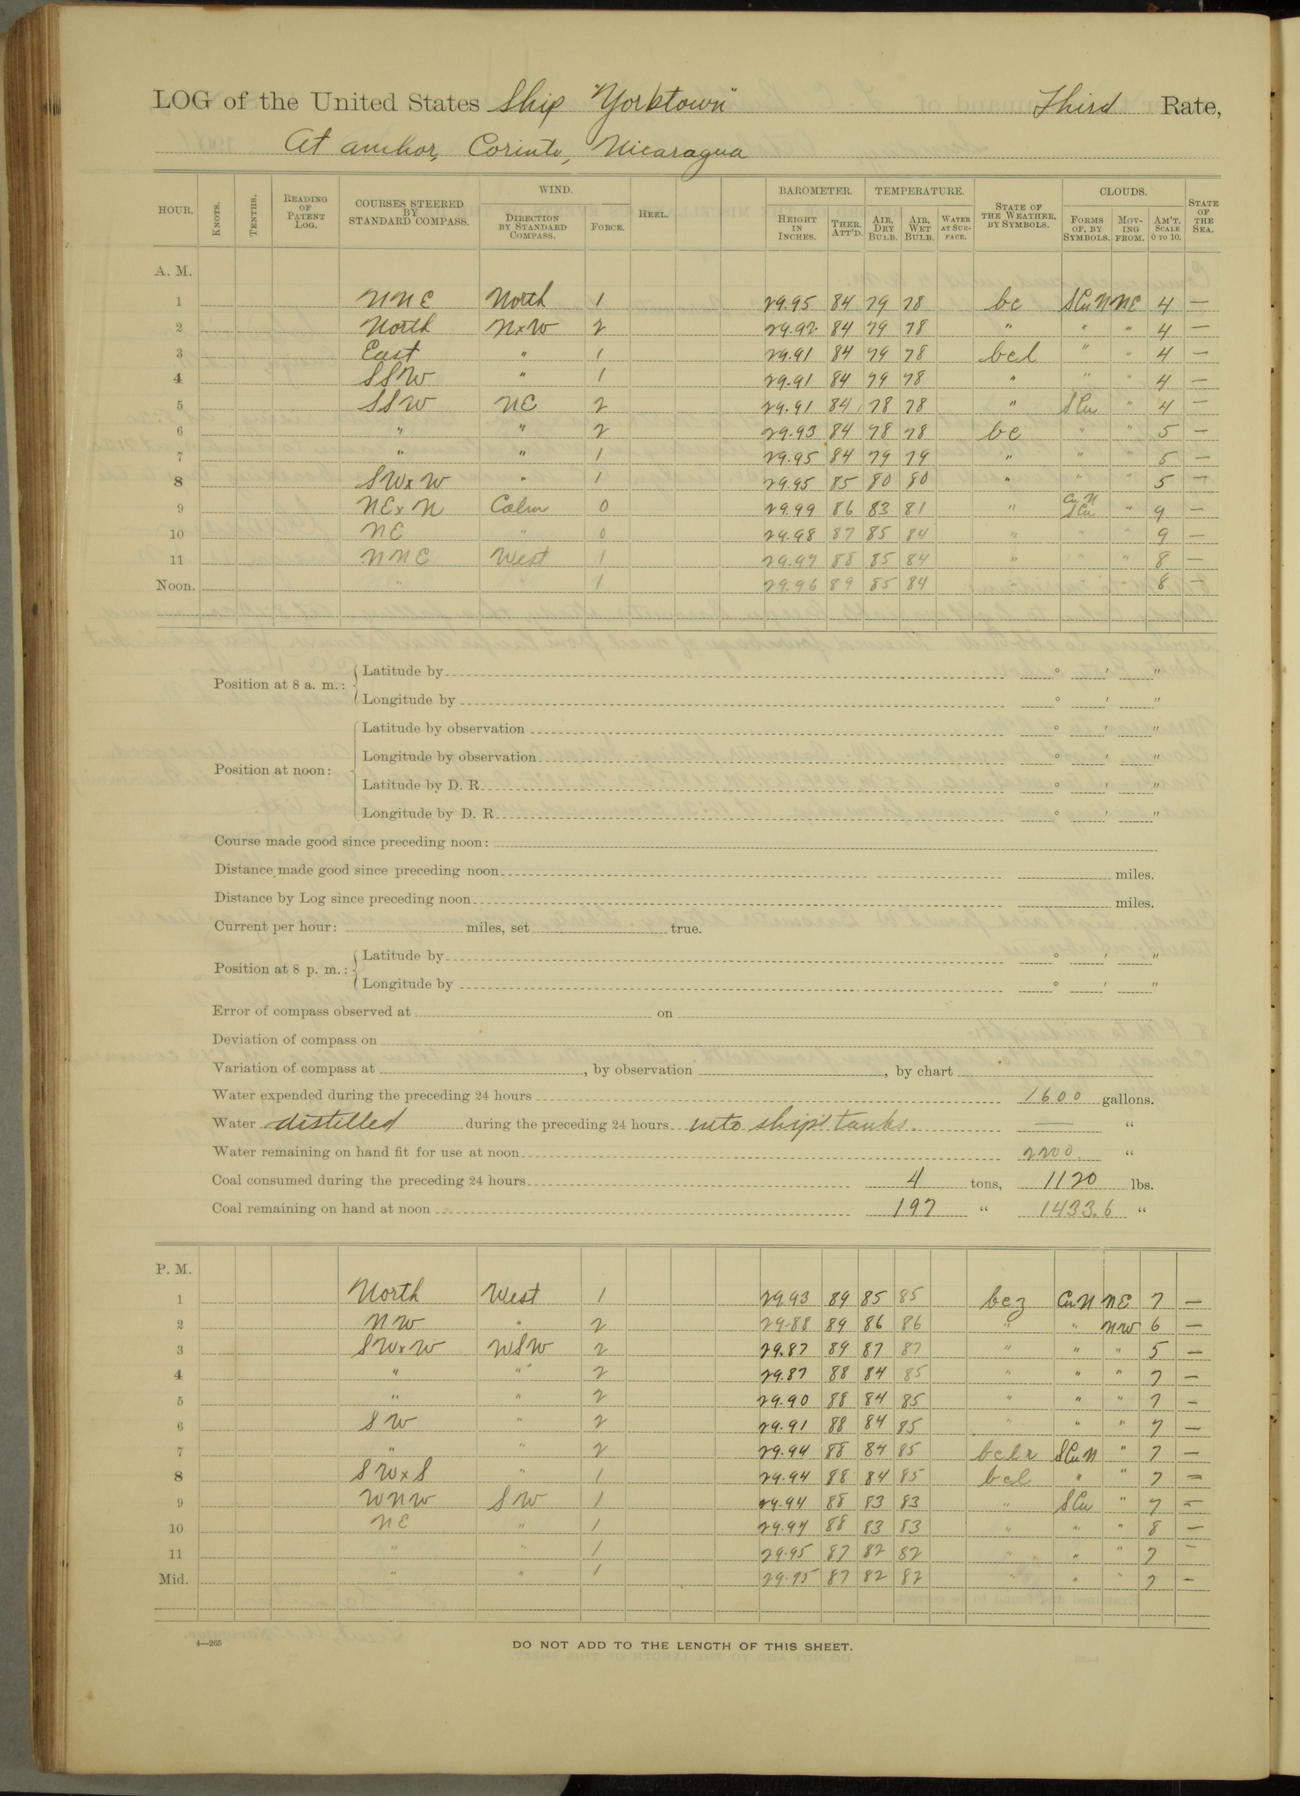 LOG of the United States Ship "Yorktown" Third Rate,
At anchor, Corinto, Nicaragua
HOUR. KNOTS. TENTHS. READING OF PATENT LOG. COURSES STEERED BY STANDARD COMPASS. WIND. DIRECTION BY STANDARD COMPASS. FORCE. HEEL. BAROMETER. HEIGHT IN INCHES. THER. ATT'D. TEMPERATURE. AIR, DRY BULB. AIR, WET BULB. WATER AT SURFACE. STATE OF THE WEATHER, BY SYMBOLS. CLOUDS. FORMS OF, BY SYMBOLS. MOVING FROM. AM'T. SCALE 0 TO 10. STATE OF THE SEA.
A. M.
1 NNE North 1 29.95 84 79 78 bc SCuN NE 4 —
2 North NxW 2 29.92 84 79 78 " " " 4 —
3 East " 1 29.91 84 79 78 bcl " " 4 —
4 SSW " 1 29.91 84 79 78 " " " 4 —
5 SSW NE 2 29.91 84 78 78 " SCu " 4 —
6 " " 2 29.93 84 78 78 bc " " 5 —
7 " " 1 29.95 84 79 79 " " " 5 —
8 SWxW " 1 29.95 85 80 80 " " " 5 —
9 NExN Calm 0 29.99 86 83 81 " CuN SCu " 9 —
10 NE " 0 29.98 87 85 84 " " " 9 —
11 NNE West 1 29.97 88 85 84 " " " 8 —
Noon. " " 1 29.96 89 85 84 8 —
Position at 8 a. m.: Latitude by ° ' "
Longitude by ° ' "
Position at noon: Latitude by observation ° ' "
Longitude by observation ° ' "
Latitude by D. R. ° ' "
Longitude by D. R. ° ' "
Course made good since preceding noon:
Distance made good since preceding noon miles.
Distance by Log since preceding noon miles.
Current per hour: miles, set true.
Position at 8 p. m.: Latitude by ° ' "
Longitude by ° ' "
Error of compass observed at on
Deviation of compass on
Variation of compass at , by observation , by chart
Water expended during the preceding 24 hours 1600 gallons.
Water distilled during the preceding 24 hours into ship's tanks. — "
Water remaining on hand fit for use at noon 2200. "
Coal consumed during the preceding 24 hours 4 tons, 1120 lbs.
Coal remaining on hand at noon 197 " 1433.6 "
P. M.
1 North West 1 29.93 89 85 85 bcz CuN NE 7 —
2 NW " 2 29.88 89 86 86 " " NW 6 —
3 SWxW WSW 2 29.87 89 87 87 " " " 5 —
4 " " 2 29.87 88 84 85 " " " 7 —
5 " " 2 29.90 88 84 85 " " " 7 —
6 SW " 2 29.91 88 84 85 " " " 7 —
7 " " 2 29.94 88 84 85 bclr SCuN " 7 —
8 SWxS " 1 29.94 88 84 85 bcl " " 7 —
9 WNW SW 1 29.94 88 83 83 " SCu " 7 —
10 NE " 1 29.97 88 83 83 " " " 8 —
11 " " 1 29.95 87 82 82 " " " 7 —
Mid. " " 1 29.95 87 82 82 " " " 7 —
4—265
DO NOT ADD TO THE LENGTH OF THIS SHEET.